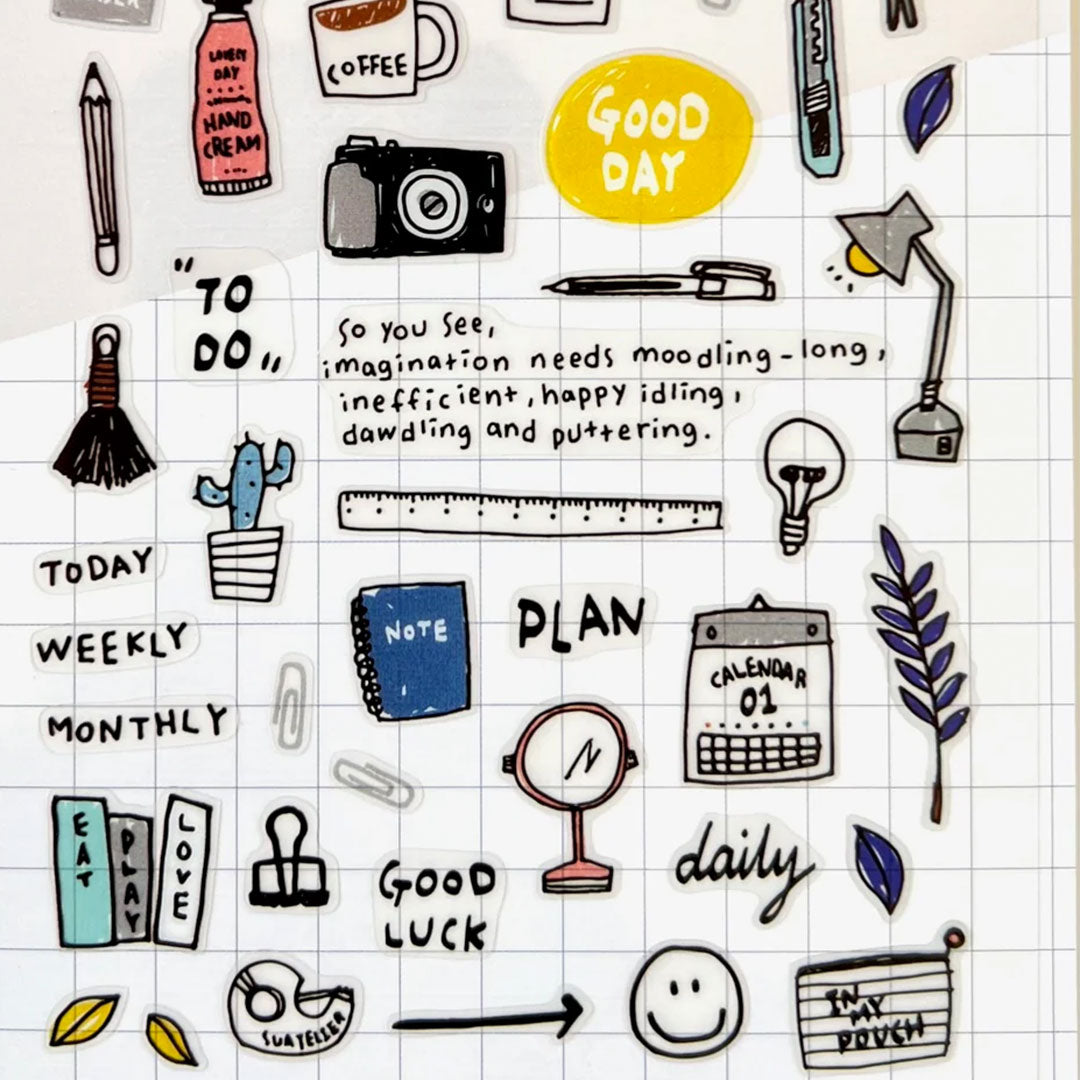 LOVELY
DAY
HAND
CREAM
COFFEE
GOOD
DAY
"TO
DO"
So you see,
imagination needs moodling-long,
inefficient, happy idling,
dawdling and puttering.
TODAY
WEEKLY
MONTHLY
NOTE
PLAN
CALENDAR
01
EAT
PLAY
LOVE
GOOD
LUCK
daily
SUATELIER
IN
MY
POUCH